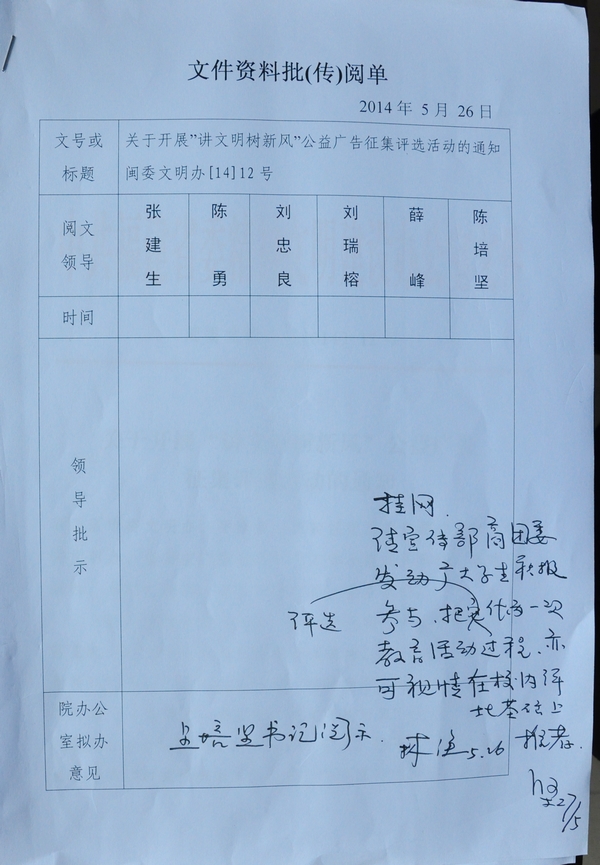 文件资料批(传)阅单
2014年 5月 26日
文号或标题
关于开展"讲文明树新风"公益广告征集评选活动的通知
闽委文明办[14]12号
阅文领导
张建生
陈勇
刘忠良
刘瑞榕
薛峰
陈培坚
时间
领导批示
挂网.
请宣传部商团委
发动广大学生积极
参与,把 作为一次
评选
教育活动过程,亦
可视情在校内评
比基础上
推荐.
27/5
院办公室拟办意见
培坚书记阅示.
林 5.26